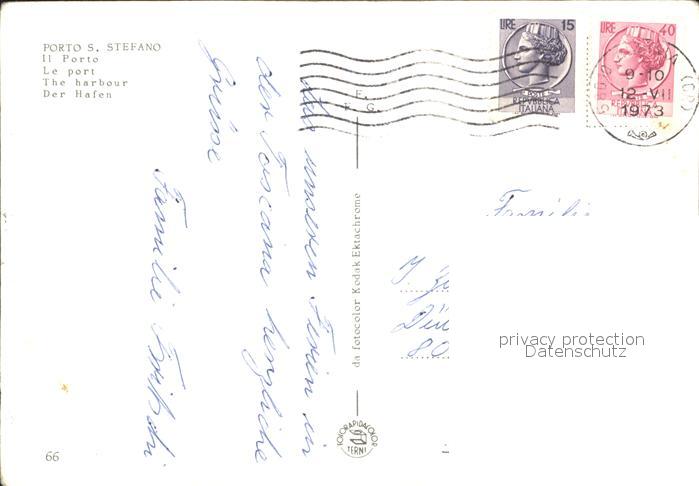 PORTO S. STEFANO
Il Porto
Le port
The harbour
Der Hafen
LIRE 15
POSTE
REPUBBLICA
ITALIANA
LIRE 40
9-10
12-VII
1973
unseren Ferien in
der Toscana herzliche
Grüsse
Familie
da fotocolor Kodak Ektachrome
FOTORAPIDACOLOR
TERNI
Familie
privacy protection
Datenschutz
66